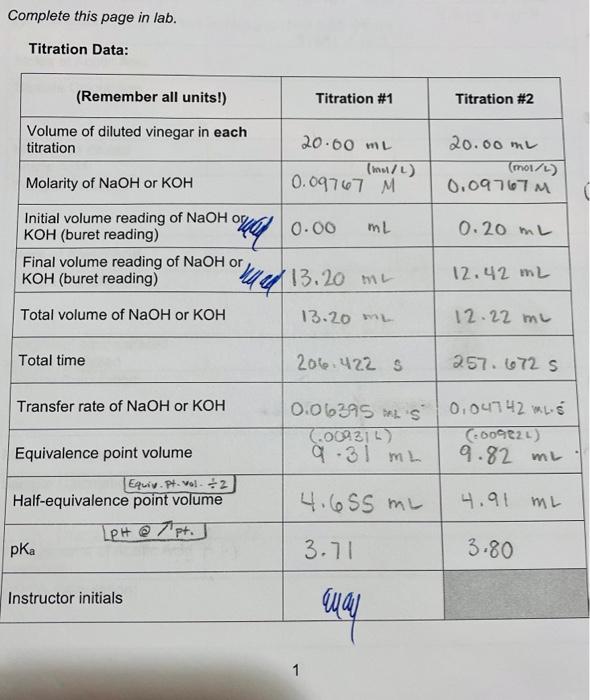 Complete this page in lab.
Titration Data:
(Remember all units!) Titration #1 Titration #2
Volume of diluted vinegar in each
titration 20.00 mL 20.00 mL
(mol/L) (mol/L)
Molarity of NaOH or KOH 0.09767 M 0.09767 M
Initial volume reading of NaOH or
KOH (buret reading) 0.00 mL 0.20 mL
Final volume reading of NaOH or
KOH (buret reading) 13.20 mL 12.42 mL
Total volume of NaOH or KOH 13.20 mL 12.22 mL
Total time 206.422 s 257.672 s
Transfer rate of NaOH or KOH 0.06395 mL·s 0.04742 mL·s
(.00931L) (.00982L)
Equivalence point volume 9.31 mL 9.82 mL
Equiv. Pt. Vol. ÷2
Half-equivalence point volume 4.655 mL 4.91 mL
pH @ ↗ pt.
pKa 3.71 3.80
Instructor initials
1